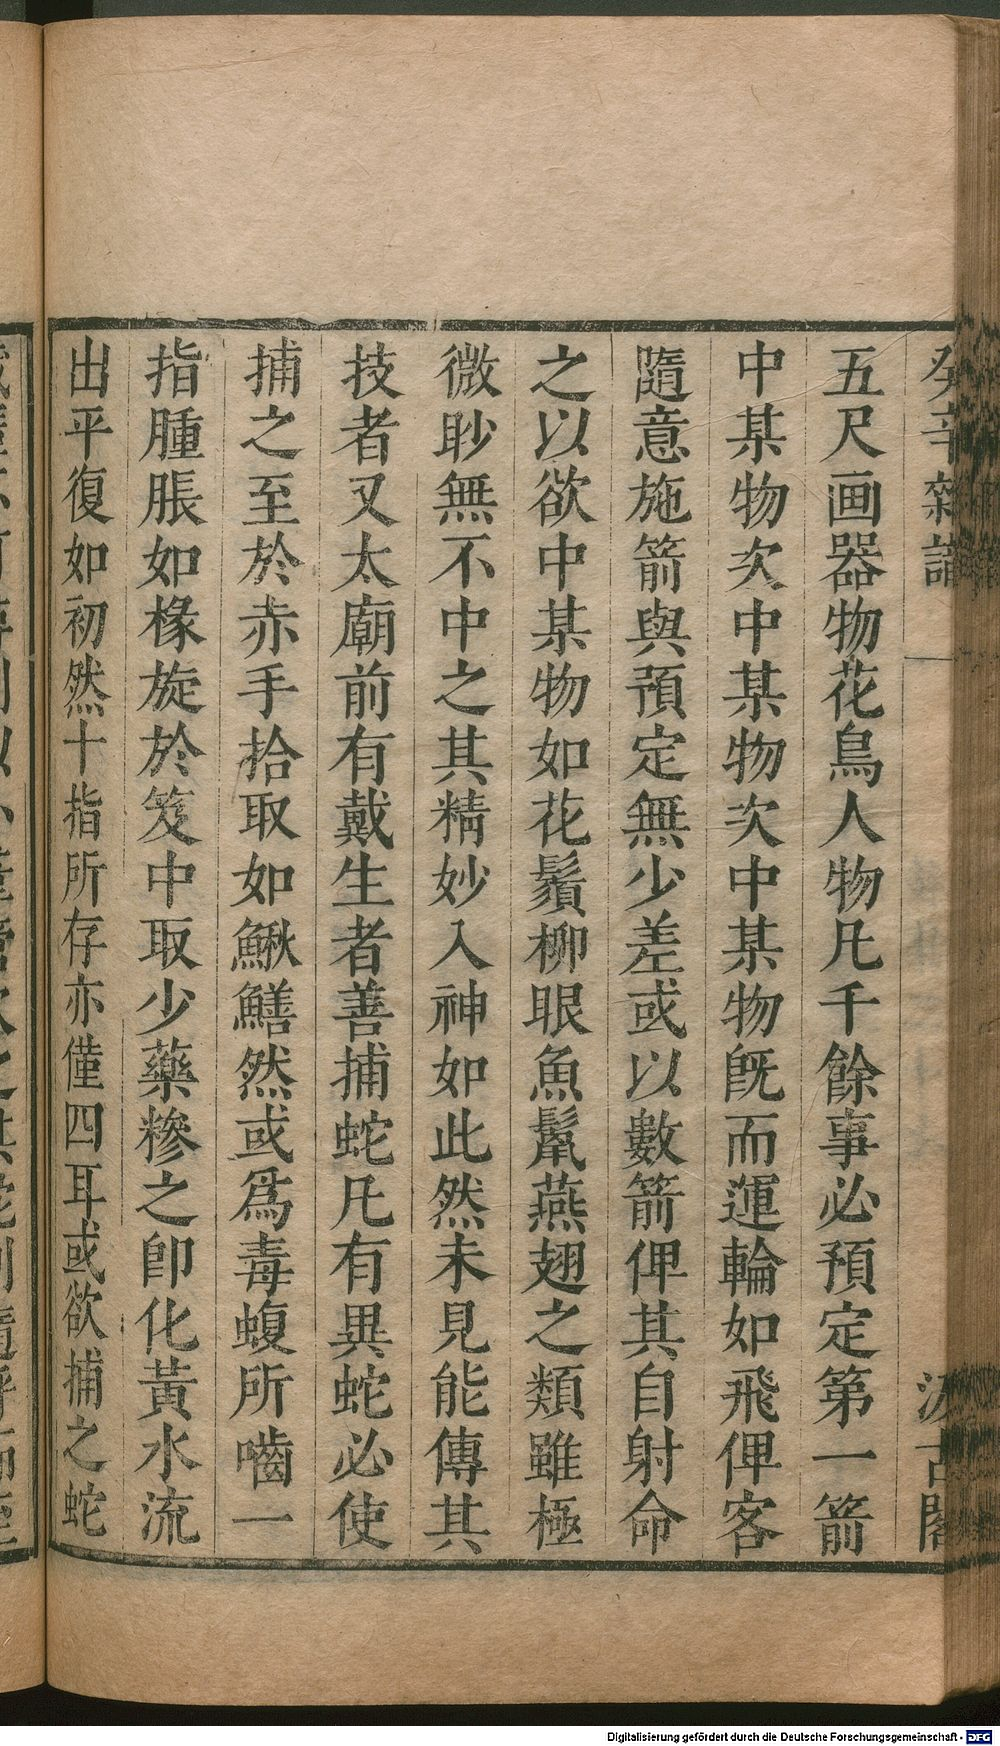 癸辛雜識
汲古閣
五尺画器物花鳥人物凡千餘事必預定第一箭
中某物次中某物次中某物旣而運輪如飛俾客
隨意施箭與預定無少差或以數箭俾其自射命
之以欲中某物如花鬚柳眼魚鬣燕翅之類雖極
微眇無不中之其精妙入神如此然未見能傳其
技者又太廟前有戴生者善捕蛇凡有異蛇必使
捕之至於赤手拾取如鰍鱔然或爲毒蝮所嚙一
指腫脹如椽旋於笈中取少藥糝之卽化黃水流
出平復如初然十指所存亦僅四耳或欲捕之蛇
Digitalisierung gefördert durch die Deutsche Forschungsgemeinschaft - DFG